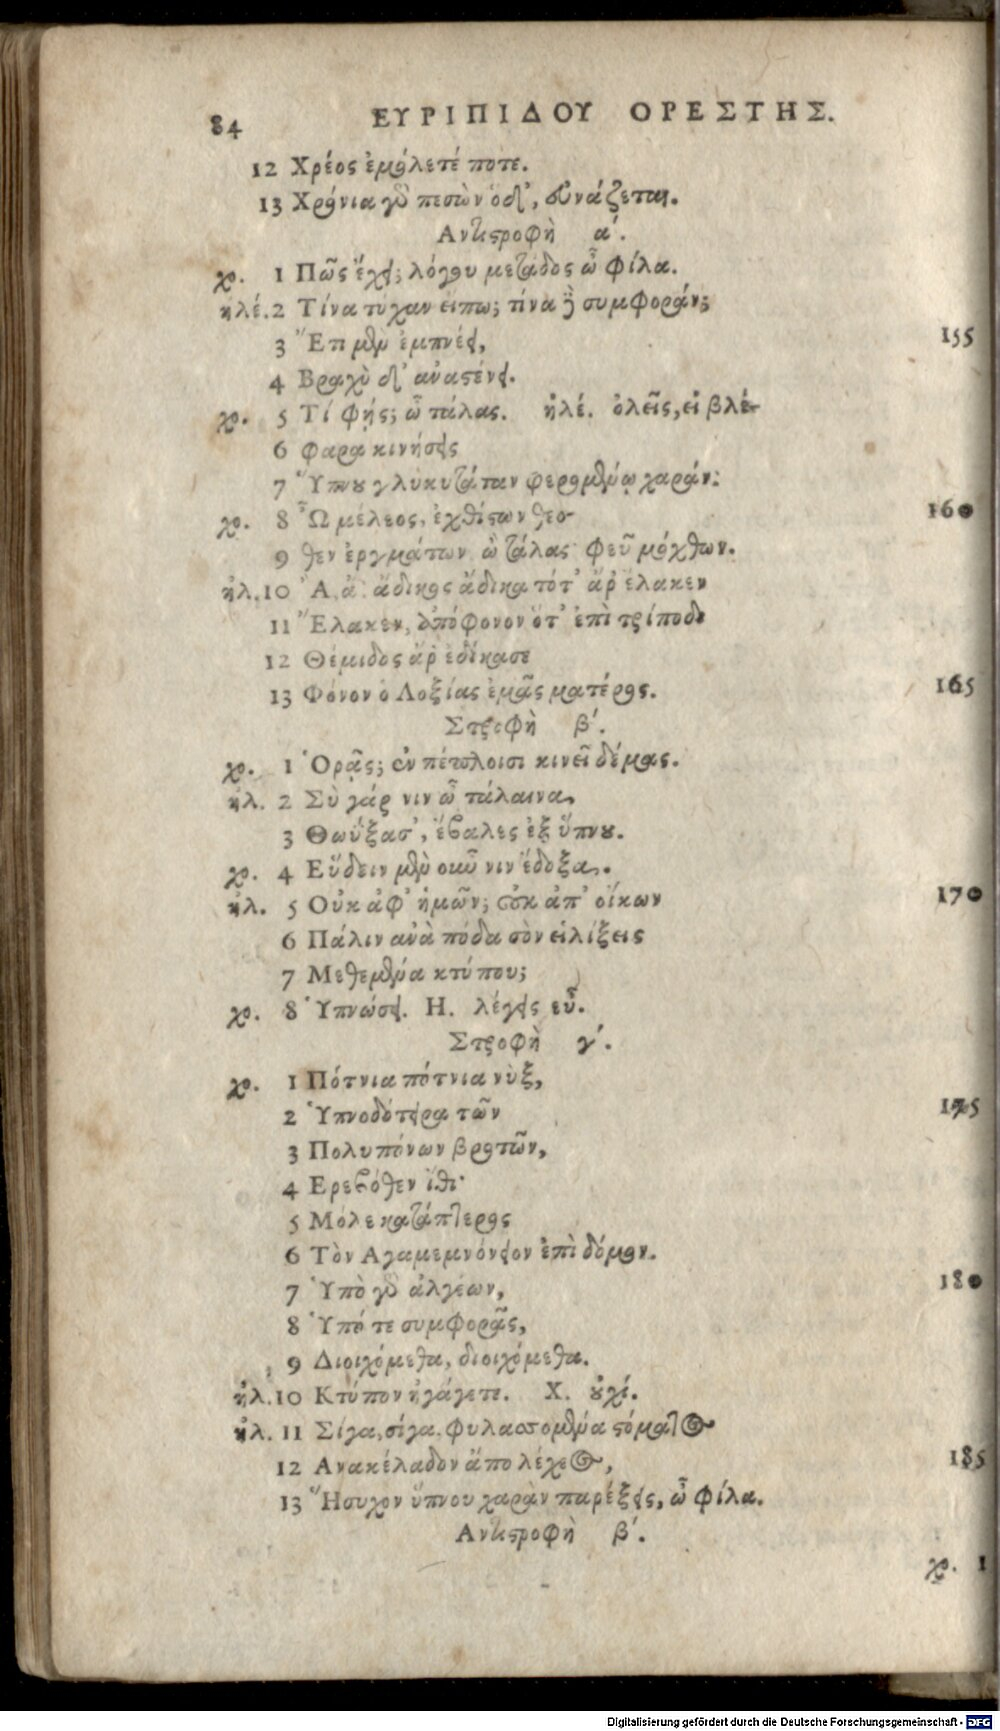 84 ΕΥΡΙΠΙΔΟΥ ΟΡΕΣΤΗΣ.
12 Χρέος ἐμόλετέ ποτε.
13 Χρόνια γὸ πεσὼν ὁδ', εὐνάζεται.
Αντιστροφὴ α΄.
χο. 1 Πῶς ἔχει; λόγου μετάδος ὦ φίλα.
ηλέ. 2 Τίνα τύχαν εἴπω; τίνα ἢ συμφοράν;
3 Ἔτι μὲν ἐμπνέει, 155
4 Βραχὺ δ' ἀναστένει.
χο. 5 Τί φῄς; ὦ τάλας. ἠλέ. ὀλεῖς, εἰ βλέ-
6 φαρα κινήσεις
7 Ὕπνου γλυκυτάταν φερομένῳ χαράν:
χο. 8 Ὦ μέλεος, ἐχθίστων θεο- 160
9 θεν ἐργμάτων ὦ τάλας φεῦ μόχθων.
ἠλ. 10 Ἀ, ἀ ἄδικος ἄδικα τότ' ἄρ' ἔλακεν
11 Ἔλακεν, ἀπόφονον ὅτ' ἐπὶ τρίποδι
12 Θέμιδος ἄρ' ἐδίκασε
13 Φόνον ὁ Λοξίας ἐμᾶς ματέρος. 165
Στροφὴ β΄.
χο. 1 Ὁρᾷς; ἐν πέπλοισι κινεῖ δέμας.
ἠλ. 2 Σὺ γάρ νιν ὦ τάλαινα,
3 Θωΰξασ', ἔβαλες ἐξ ὕπνου.
χο. 4 Εὕδειν μὲν οὖν νιν ἔδοξα.
ἠλ. 5 Οὐκ ἀφ' ἡμῶν; οὐκ ἀπ' οἴκων 170
6 Πάλιν ἀνὰ πόδα σὸν εἱλίξεις
7 Μεθεμένα κτύπου;
χο. 8 Ὑπνώσει. Η. λέγεις εὖ.
Στροφὴ γ΄.
χο. 1 Πότνια πότνια νὺξ,
2 Ὑπνοδότειρα τῶν 175
3 Πολυπόνων βροτῶν,
4 Ερεβόθεν ἴθι·
5 Μόλε κατάπτερος
6 Τὸν Αγαμεμνόνειον ἐπὶ δόμον.
7 Ὑπὸ γὸ ἀλγέων, 180
8 Ὑπό τε συμφορᾶς,
9 Διοιχόμεθα, διοιχόμεθα.
ἠλ. 10 Κτύπον ἠγάγετε. Χ. οὐχί.
ἠλ. 11 Σίγα, σίγα. φυλασσομένα στόματος
12 Ανακέλαδον ἄπο λέχεος, 185
13 Ἥσυχον ὕπνου χαρὰν παρέξεις, ὦ φίλα.
Αντιστροφὴ β΄.
χο. 1
Digitalisierung gefördert durch die Deutsche Forschungsgemeinschaft - DFG